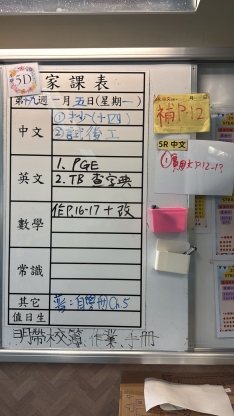 5D
家課表
第十九週 一月五日(星期一)
中文
① 抄(十四)
②
英文
1. PGE
2. TB 查字典
數學
作P.16-17 + 改
常識
其它
普:自學冊Ch.5
值日生
明帶校簿、作業、手冊
補P.12
5R 中文
① P.12-17